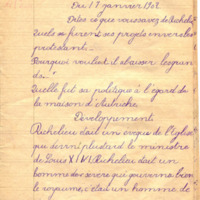 Du 17 janvier 1908
Dites ce que vous savez de Richelieu
Quels furent ses projets envers les
protestants.
Pourquoi voulait-il abaisser les gran
ds.
Quelle fut sa politique à l'égard de
la maison d'Autriche.
Développement
Richelieu était un évêque de l'Eglise
qui devint plus tard le ministre
de Louis XIII Richelieu était un
homme de
le royaume, c'était un homme de